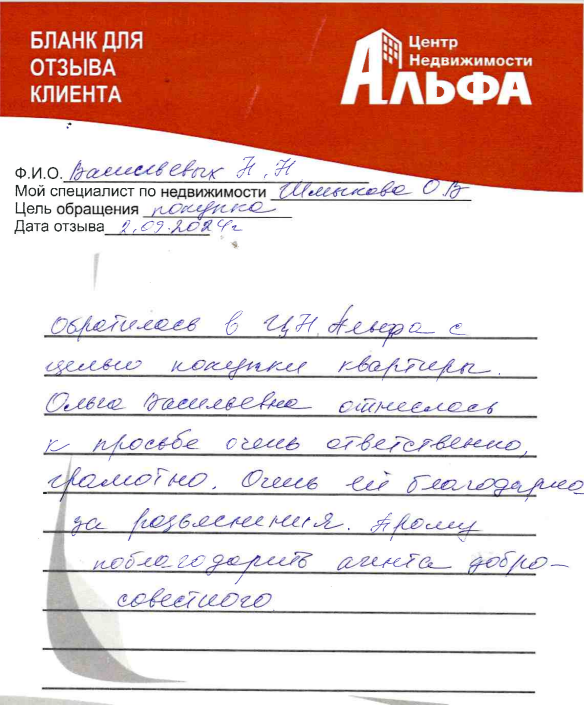 БЛАНК ДЛЯ
ОТЗЫВА
КЛИЕНТА
Центр
Недвижимости
АЛЬФА
Ф.И.О. Васильевых Н.Н
Мой специалист по недвижимости Шмыкова О В
Цель обращения покупка
Дата отзыва 2.09.2024г
Обратилась в ЦН Альфа с
целью покупки квартиры.
Ольга Васильевна отнеслась
к просьбе очень ответственно,
грамотно. Очень ей благодарна
за разъяснения. Прошу
поблагодарить агента добро-
совестного